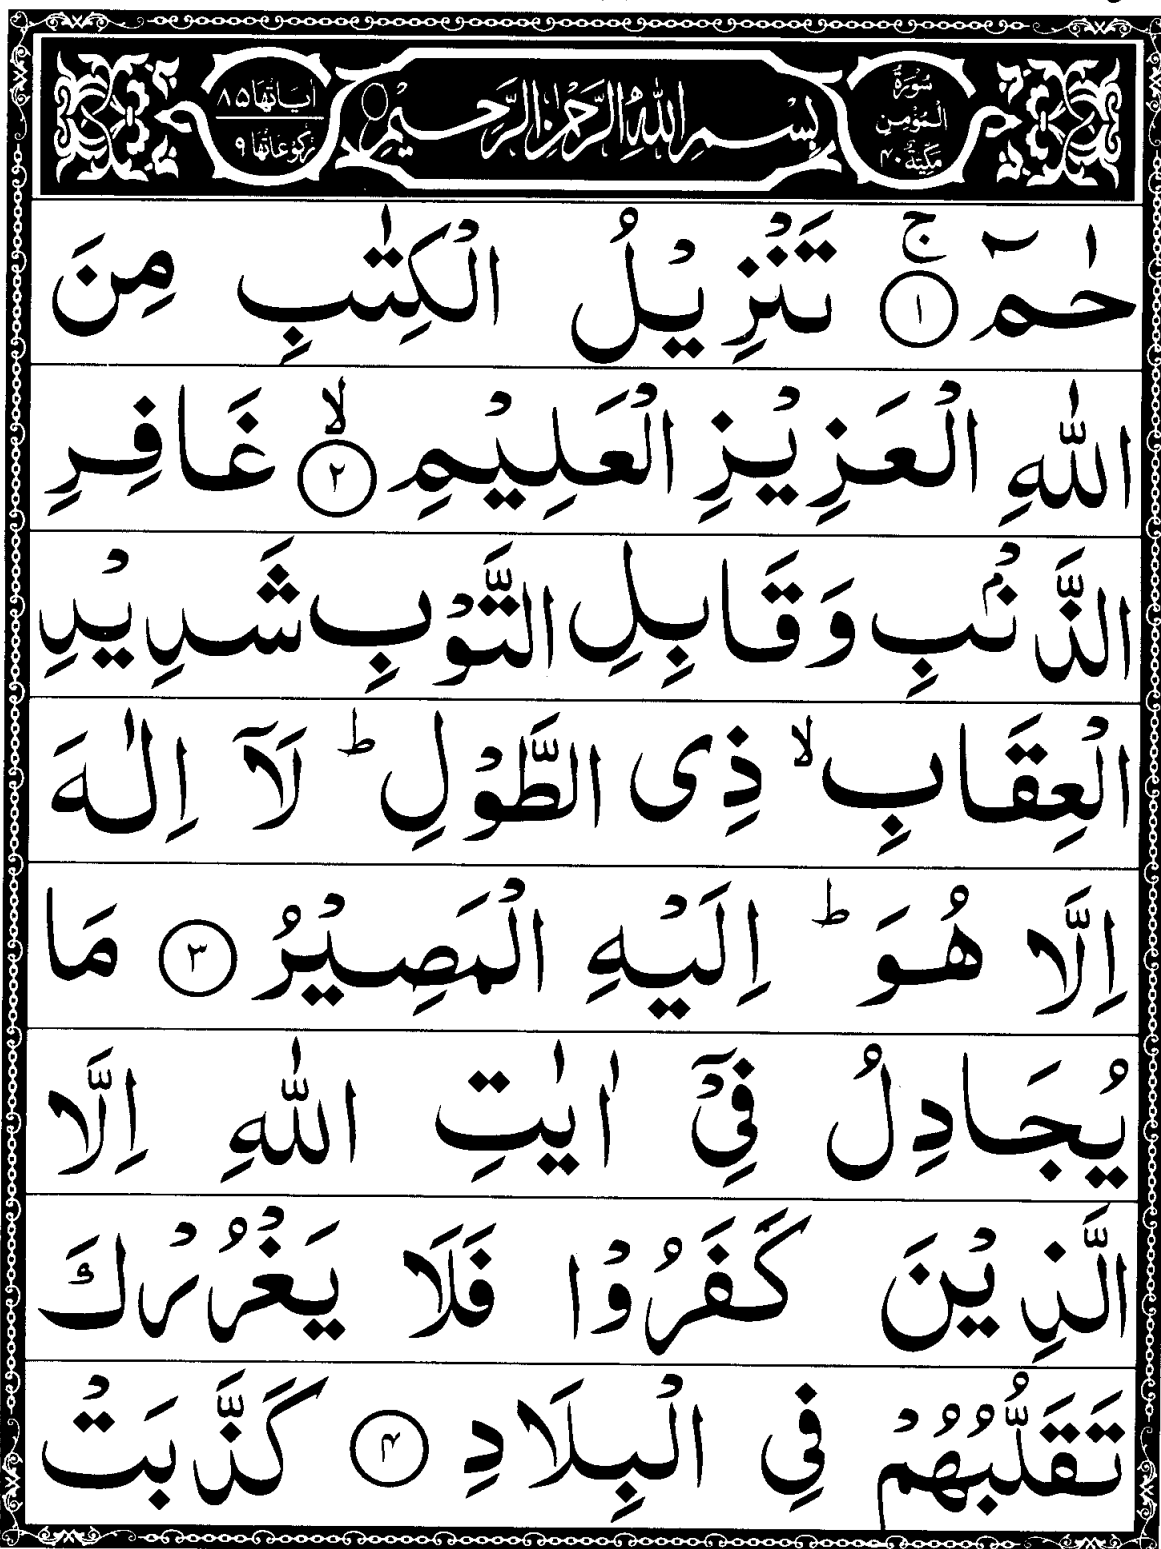 سُوْرَةُ الْمُؤْمِن مَكِّيَّةٌ ٤٠
بِسْمِ اللّٰهِ الرَّحْمٰنِ الرَّحِيْمِ
اٰيَاتُهَا ٨٥
رُكُوْعَاتُهَا ٩
حٰمٓ ۚ ﴿١﴾ تَنْزِيْلُ الْكِتٰبِ مِنَ
اللّٰهِ الْعَزِيْزِ الْعَلِيْمِ ۙ ﴿٢﴾ غَافِرِ
الذَّنْۢبِ وَقَابِلِ التَّوْبِ شَدِيْدِ
الْعِقَابِ ۙ ذِی الطَّوْلِ ؕ لَآ اِلٰهَ
اِلَّا هُوَ ؕ اِلَيْهِ الْمَصِيْرُ ﴿٣﴾ مَا
يُجَادِلُ فِیْۤ اٰيٰتِ اللّٰهِ اِلَّا
الَّذِيْنَ كَفَرُوْا فَلَا يَغْرُرْكَ
تَقَلُّبُهُمْ فِی الْبِلَادِ ﴿۴﴾ كَذَّبَتْ